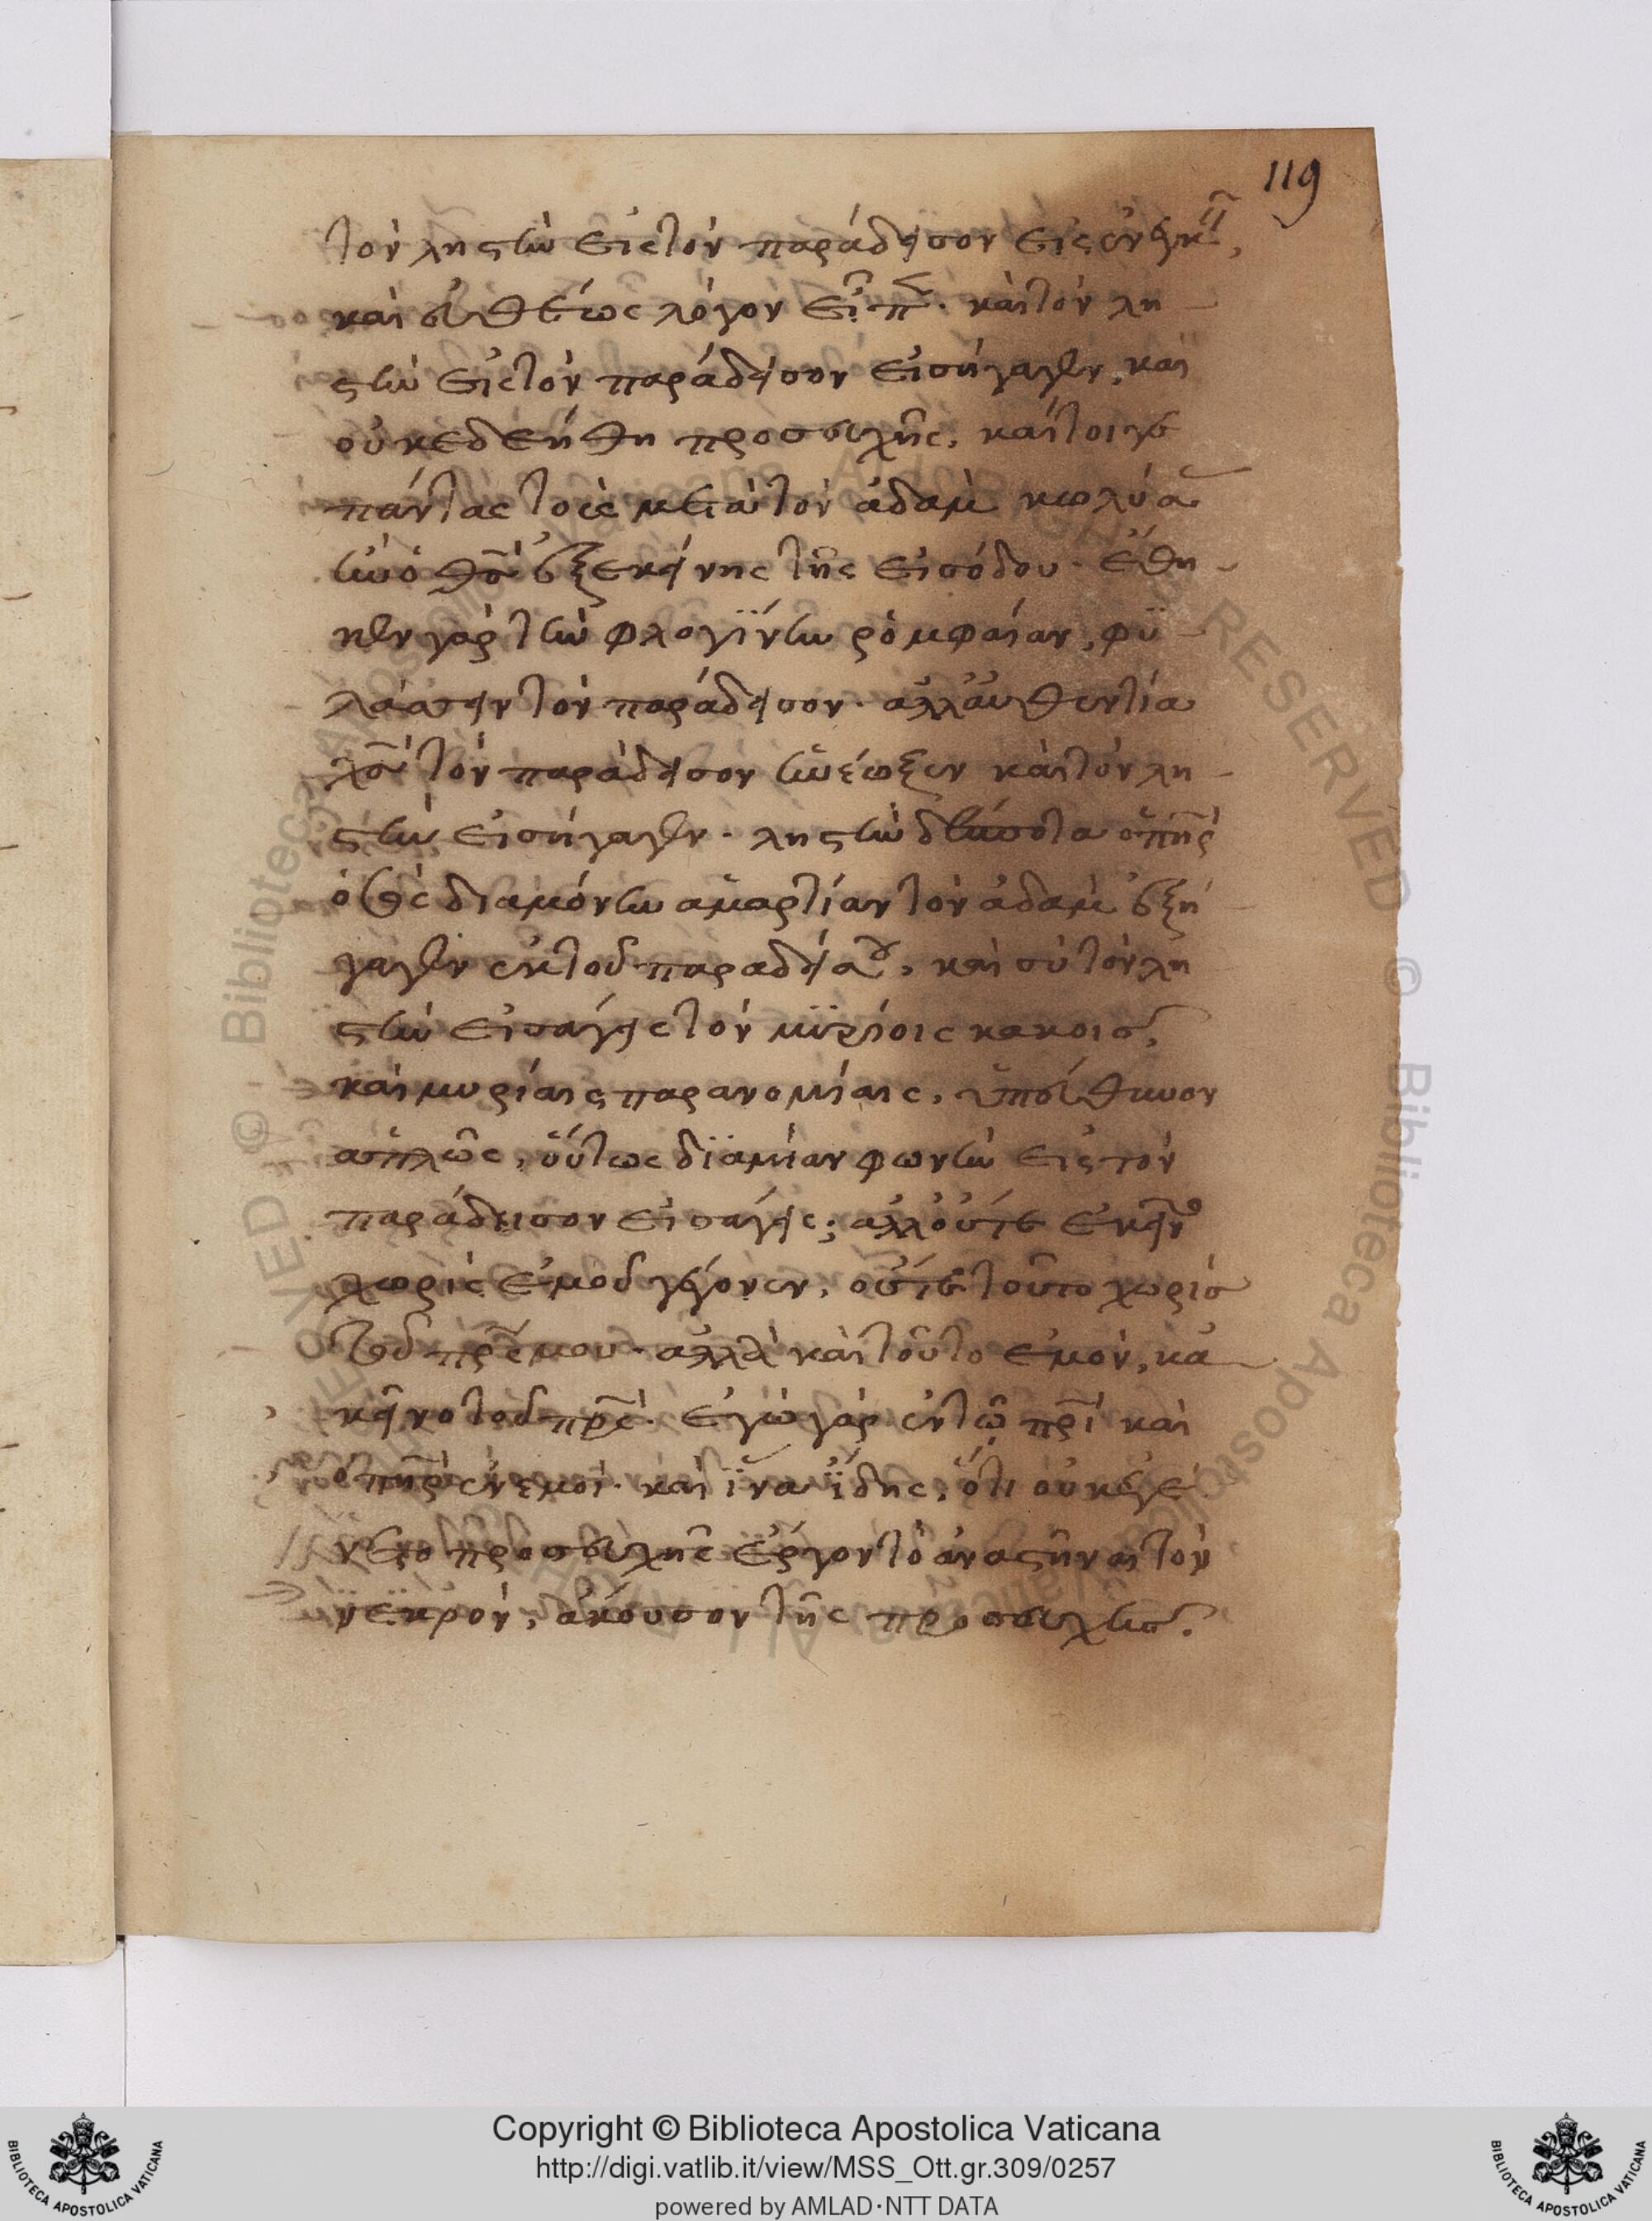 119
τὸν ληστὴν εἰς τὸν παράδεισον εἰσενεγκεῖν,
καὶ εὐθέως λόγον εἶπε. καὶ τὸν λη
στὴν εἰς τὸν παράδεισον εἰσήγαγεν, καὶ
οὐκ ἐδεήθη προσευχῆς. καίτοιγε
πάντας τοὺς μετὰ τὸν ἀδὰμ κωλύσας
ἦν ὁ θσ ἐξ ἐκείνης τῆς εἰσόδου. ἔθη
κεν γὰρ τὴν φλογΐνην ῥομφαίαν, φϋ
λάσσειν τὸν παράδεισον. ἀλλ' αὐθεντία
τὸν παράδεισον ἠνέωξεν καὶ τὸν λη
στὴν εἰσήγαγεν. ληστὴν δέσποτα ὁ πηρ
ὁ σὸς διὰ μόνην ἁμαρτίαν τὸν ἀδὰμ ἐξή
γαγεν ἐκ τοῦ παραδείσου, καὶ σὺ τὸν λη
στὴν εἰσάγεις τὸν μϋρίοις κακοῖς,
καὶ μυρίαις παρανομίαις, ὑπεύθυνον
ἁπλῶς, οὕτως δϊὰ μίαν φωνὴν εἰς τὸν
παράδεισον εἰσάγεις; ἀλλ' οὔτε ἐκεῖνο
χωρὶς ἐμοῦ γέγονεν, οὔτε τοῦτο χωρὶς
τοῦ πρς μου. ἀλλὰ καὶ τοῦτο ἐμὸν, κἀ
κεῖνο τοῦ πρς. ἐγὼ γὰρ ἐν τῶ πρι καὶ
ὁ πηρ ἐν ἐμοί. καὶ ἵνα ἴδης, ὅτι οὐκ ἐγέ
νετο προσευχῆς ἔργον τὸ ἀναστῆναι τὸν
νεκρὸν, ἄκουσον τῆς προσευχῆς.
Copyright © Biblioteca Apostolica Vaticana
http://digi.vatlib.it/view/MSS_Ott.gr.309/0257
powered by AMLAD·NTT DATA